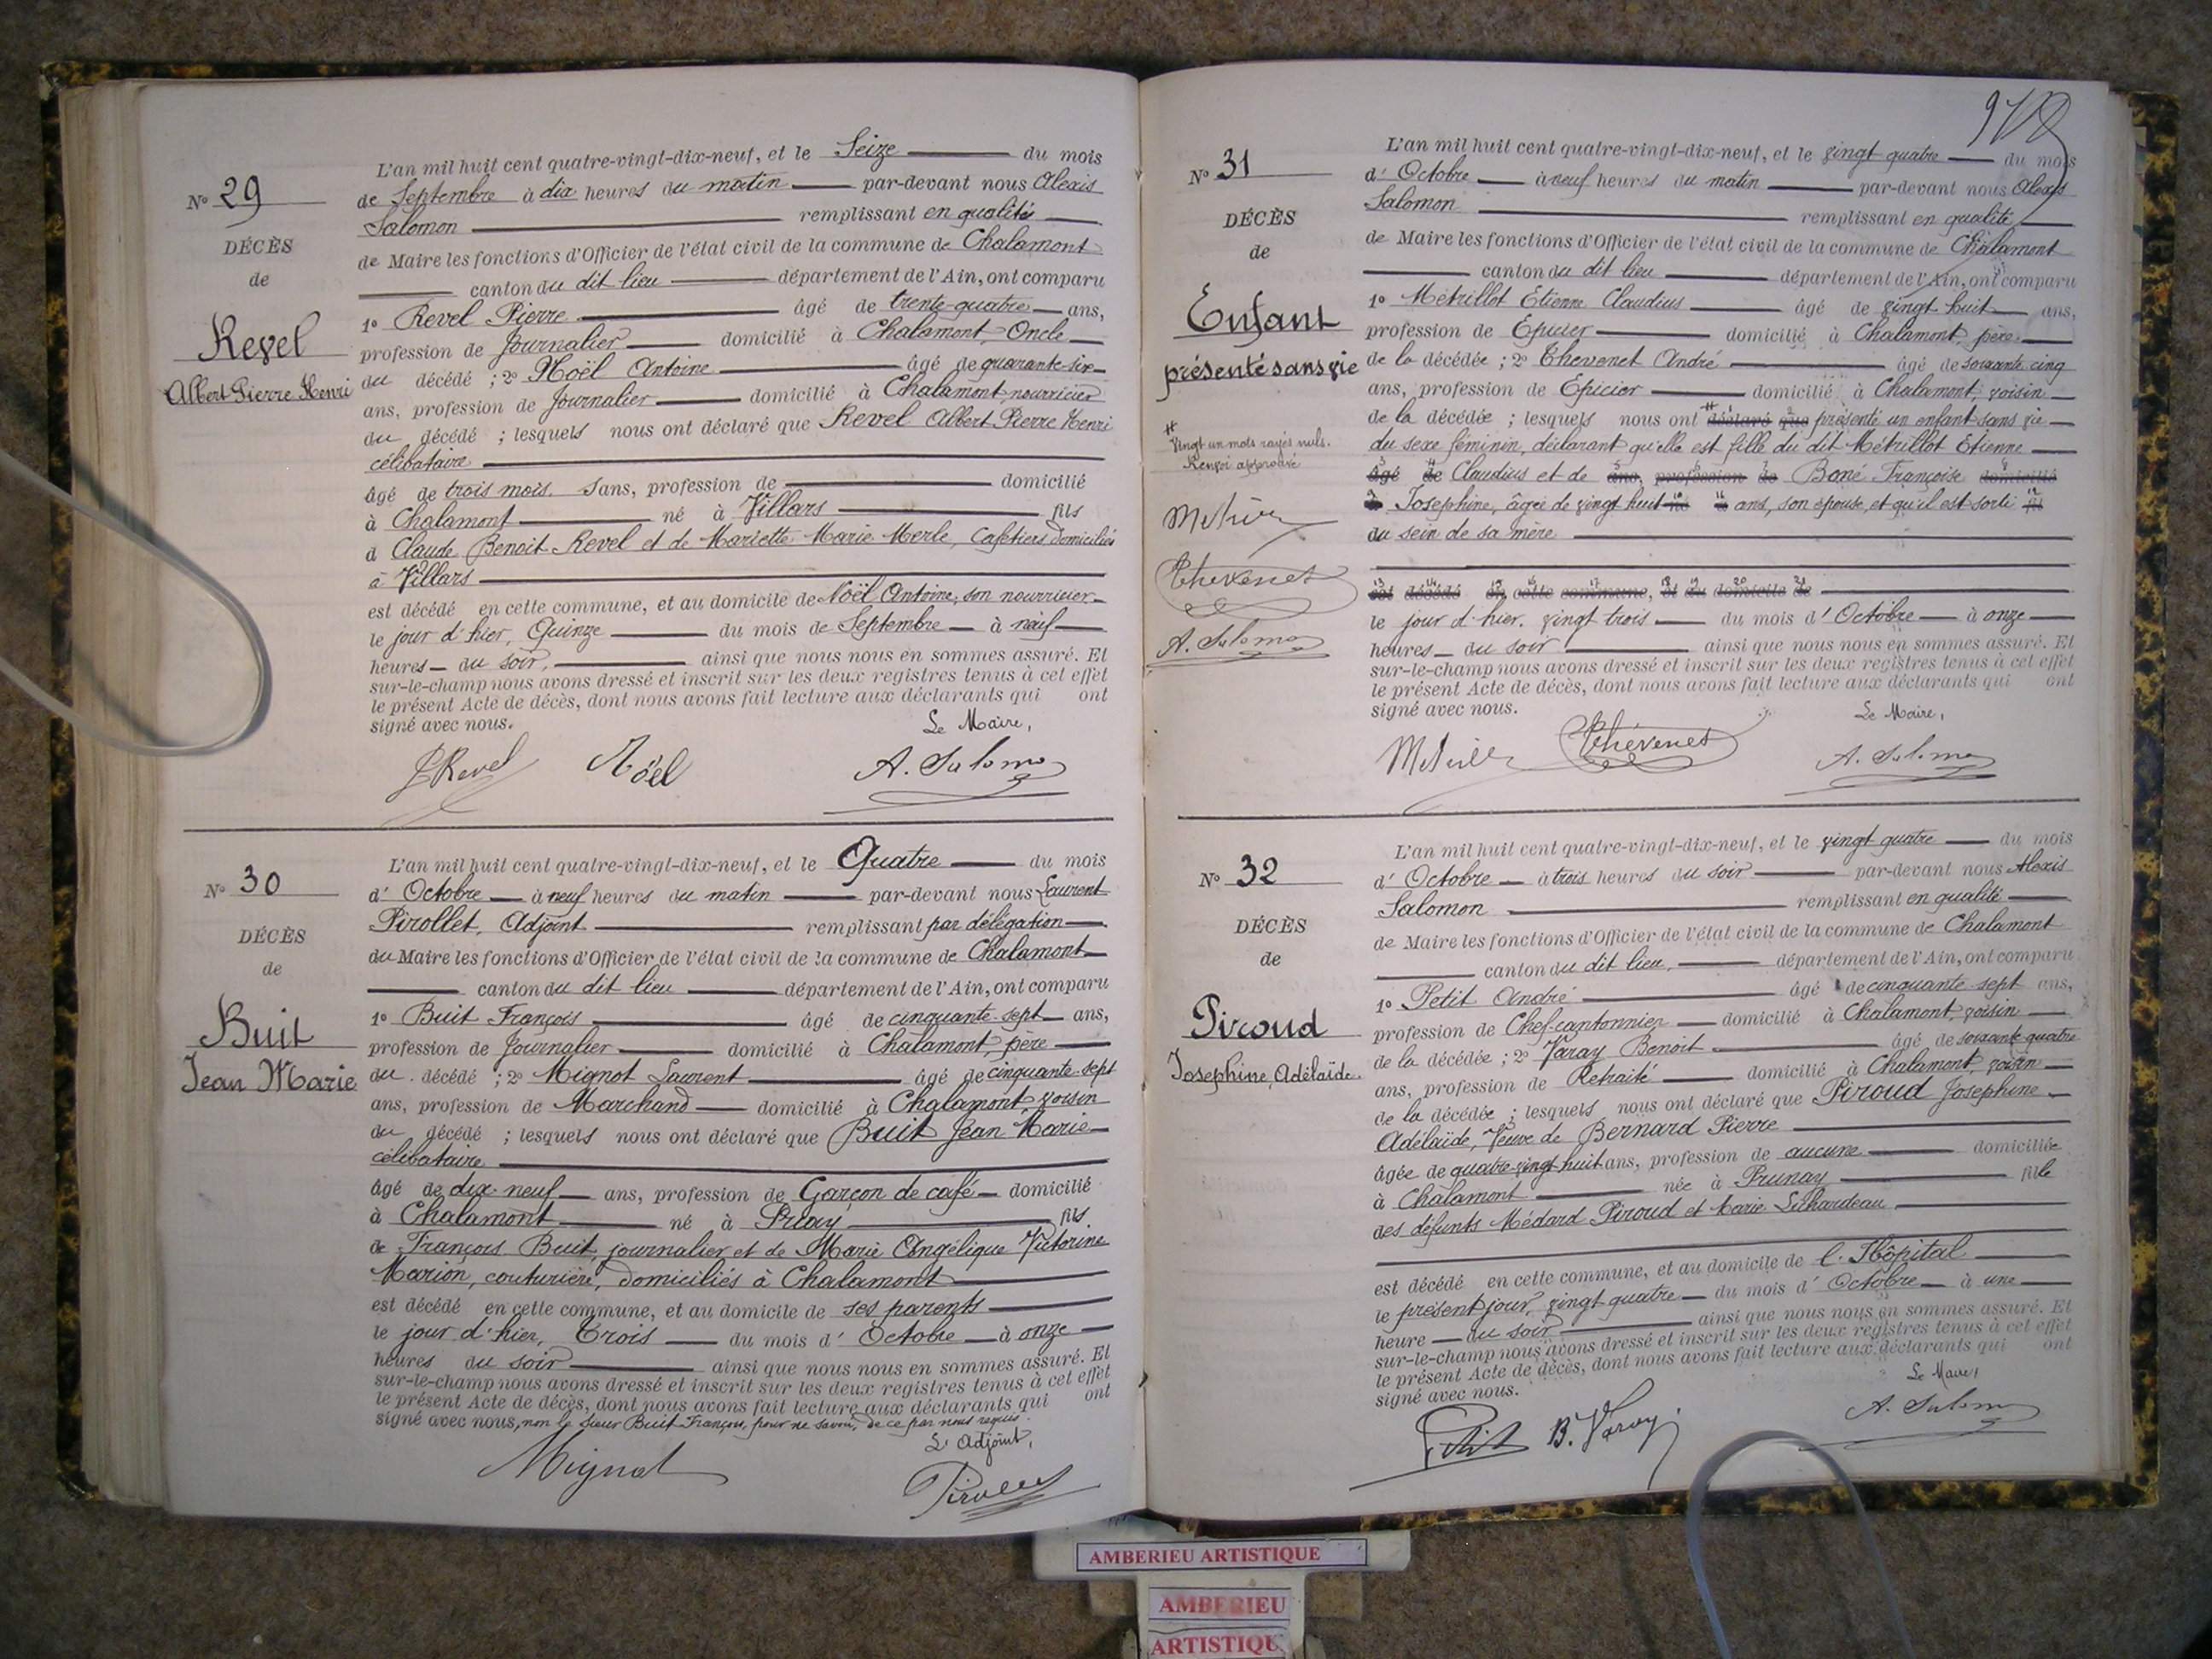 N° 29
DÉCÈS
de
Revel
Albert Pierre Henri
L'an mil huit cent quatre-vingt-dix-neuf, et le Seize du mois
de Septembre à dix heures du matin par-devant nous Alexis
Salomon remplissant en qualité
de Maire les fonctions d'Officier de l'état civil de la commune de Chalamont
canton du dit lieu département de l'Ain, ont comparu
1° Revel Pierre âgé de trente-quatre ans,
profession de Journalier domicilié à Chalamont, Oncle
du décédé ; 2° Noël Antoine âgé de quarante-six
ans, profession de Journalier domicilié à Chalamont nourricier
du décédé ; lesquels nous ont déclaré que Revel Albert Pierre Henri
célibataire
âgé de trois mois. Sans, profession de domicilié
à Chalamont né à Villars fils
d Claude Benoit Revel et de Mariette Marie Merle, Cafetiers domiciliés
à Villars
est décédé en cette commune, et au domicile de Noël Antoine, son nourricier
le jour d'hier, Quinze du mois de Septembre à neuf
heures du soir, ainsi que nous nous en sommes assuré. Et
sur-le-champ nous avons dressé et inscrit sur les deux registres tenus à cet effet
le présent Acte de décès, dont nous avons fait lecture aux déclarants qui ont
signé avec nous.
Le Maire,
Revel Noël A. Salomon
N° 30
DÉCÈS
de
Buit
Jean Marie
L'an mil huit cent quatre-vingt-dix-neuf, et le Quatre du mois
d' Octobre à neuf heures du matin par-devant nous Laurent
Pirollet, Adjoint remplissant par délégation
du Maire les fonctions d'Officier de l'état civil de la commune de Chalamont
canton du dit lieu département de l'Ain, ont comparu
1° Buit François âgé de cinquante-sept ans,
profession de Journalier domicilié à Chalamont, père
du décédé ; 2° Mignot Laurent âgé de cinquante-sept
ans, profession de Marchand domicilié à Chalamont, voisin
du décédé ; lesquels nous ont déclaré que Buit Jean Marie
célibataire
âgé de dix-neuf ans, profession de Garçon de café domicilié
à Chalamont né à Priay fils
de François Buit, journalier et de Marie Angélique Victorine
Marion, couturière, domiciliés à Chalamont
est décédé en cette commune, et au domicile de ses parents
le jour d'hier, Trois du mois d' Octobre à onze
heures du soir ainsi que nous nous en sommes assuré. Et
sur-le-champ nous avons dressé et inscrit sur les deux registres tenus à cet effet
le présent Acte de décès, dont nous avons fait lecture aux déclarants qui ont
signé avec nous, non le sieur Buit François, pour ne savoir, de ce par nous requis.
L'Adjoint,
Mignot Pirollet
N° 31
DÉCÈS
de
Enfant
présenté sans vie
#
Vingt un mots rayés nuls.
Renvoi approuvé
Thevenet
A. Salomon
L'an mil huit cent quatre-vingt-dix-neuf, et le vingt quatre du mois
d' Octobre à neuf heures du matin par-devant nous Alexis
Salomon remplissant en qualité
de Maire les fonctions d'Officier de l'état civil de la commune de Chalamont
canton du dit lieu département de l'Ain, ont comparu
1° Métrillot Etienne Claudius âgé de vingt huit ans,
profession de Epicier domicilié à Chalamont, père
de la décédée ; 2° Thevenet André âgé de soixante cinq
ans, profession de Epicier domicilié à Chalamont, voisin
de la décédée ; lesquels nous ont déclaré que présenté un enfant sans vie
du sexe féminin, déclarant qu'elle est fille du dit Métrillot Etienne
âgé de Claudius et de ans, profession de Boné Françoise domicilié
à Josephine, âgée de vingt huit né à ans, son épouse, et qu'il est sorti fil
du sein de sa mère
est décédé en cette commune, et au domicile de
le jour d'hier, vingt trois du mois d' Octobre à onze
heures du soir ainsi que nous nous en sommes assuré. Et
sur-le-champ nous avons dressé et inscrit sur les deux registres tenus à cet effet
le présent Acte de décès, dont nous avons fait lecture aux déclarants qui ont
signé avec nous.
Le Maire,
Thévenet A. Salomon
N° 32
DÉCÈS
de
Piroud
Josephine, Adélaïde
L'an mil huit cent quatre-vingt-dix-neuf, et le vingt quatre du mois
d' Octobre à trois heures du soir par-devant nous Alexis
Salomon remplissant en qualité
de Maire les fonctions d'Officier de l'état civil de la commune de Chalamont
canton du dit lieu, département de l'Ain, ont comparu
1° Petit André âgé de cinquante-sept ans,
profession de Chef-cantonnier domicilié à Chalamont, voisin
de la décédée ; 2° Varay Benoit âgé de soixante-quatre
ans, profession de Retraité domicilié à Chalamont, voisin
de la décédée ; lesquels nous ont déclaré que Piroud Josephine
Adélaïde, Veuve de Bernard Pierre
âgée de quatre-vingt huit ans, profession de aucune domiciliée
à Chalamont née à Prunay fille
des défunts Médard Piroud et Marie Lichardeau
est décédé en cette commune, et au domicile de l'Hôpital
le présent jour, vingt quatre du mois d' Octobre à une
heure du soir ainsi que nous nous en sommes assuré. Et
sur-le-champ nous avons dressé et inscrit sur les deux registres tenus à cet effet
le présent Acte de décès, dont nous avons fait lecture aux déclarants qui ont
signé avec nous.
Le Maire,
Petit B. Varay A. Salomon
AMBERIEU ARTISTIQUE
AMBERIEU
ARTISTIQUE